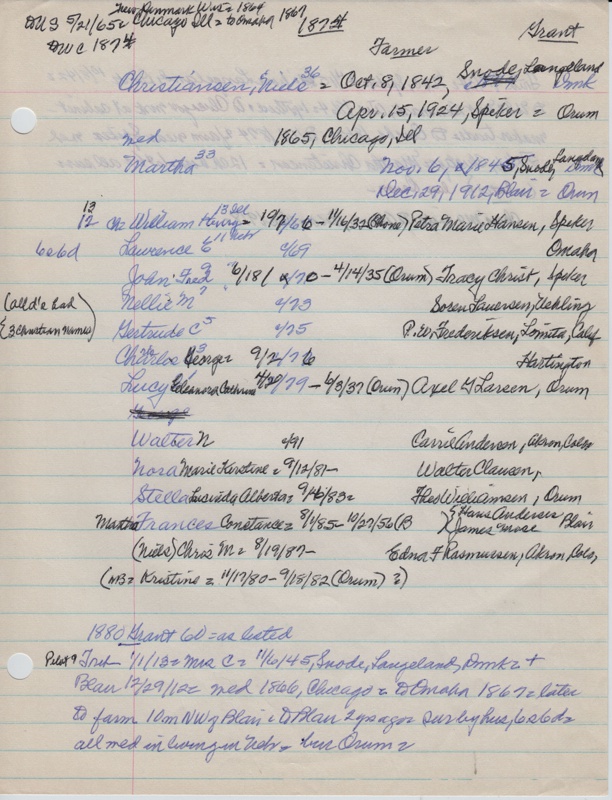 New Denmark Wis = 1864
DUS 5/21/65 = Chicago Ill = to Omaha 1867
DWC 1874
1874
Grant
Farmer
Christiansen, Niels 36 = Oct. 8, 1842, Snode, Langeland Dmk
Apr. 15, 1924, Speker = Orum
med 1865, Chicago, Ill
Martha 33 Nov. 6, 1845, Snode, Langeland Dmk
Dec. 29, 1912, Blair = Orum
13
12 ch = William Henry 13 Ill = 10/7/66 - 11/16/32 (Chone) Petra Marie Hansen, Speker
6s6d Lawrence E 11 Nebr /69 Omaha
John Fred 9 6/18/70 - 4/14/35 (Orum) Tracy Christ, Speker
(all d'e had Nellie M 7 /73 Soren Laursen, Uehling
{3 Christian names) Gertrude C 5 /75 P. W. Frederiksen, Lomita, Calif
Charles George 3 = 9/2/76 Hartington
Lucy Eleanora Cathrine 1 4/20/79 - 6/3/37 (Orum) Axel G Larsen, Orum
Walter N /91 Carrie Anderson, Akron, Colo
Nora Marie Kirstine = 9/12/81 - Walter Clausen,
Stella Lucinda Alberta = 9/ /83 = Theo Williamsen, Orum
Martha Frances Constance = 8/1/85 - 10/27/56 (B {Hans Andersen Blair
James
(Niels) Chris M = 8/19/87 - Edna F Rasmussen, Akron, Colo,
(MB = Kristine = 11/17/80 - 9/18/82 (Orum) ?)
1880 Grant 60 = as listed
Pilot 9 Trib 1/1/13 = Mrs C = 11/6/45, Snode, Langeland, Dmk = +
Blair 12/29/12 = med 1866, Chicago = to Omaha 1867 = later
to farm 10m NW of Blair = to Blair 2 ys ago = sur by hus, 6s6d =
all med in living in Nebr = bur Orum =